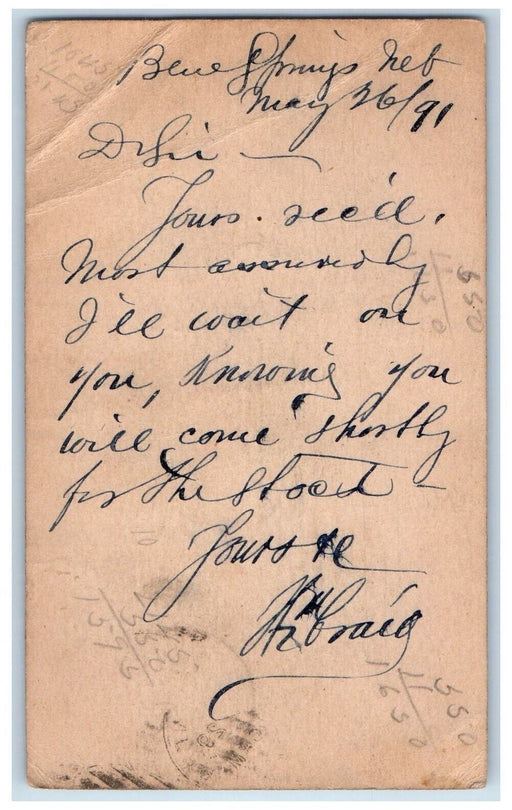 Blue Springs Neb
May 26/91
D Sir —
Yours. rec'd.
Most assuredly
I'll wait on
you, Knowing you
will come shortly
for the stock —
Yours &c
Wm Craig
550
11/50
550
1650